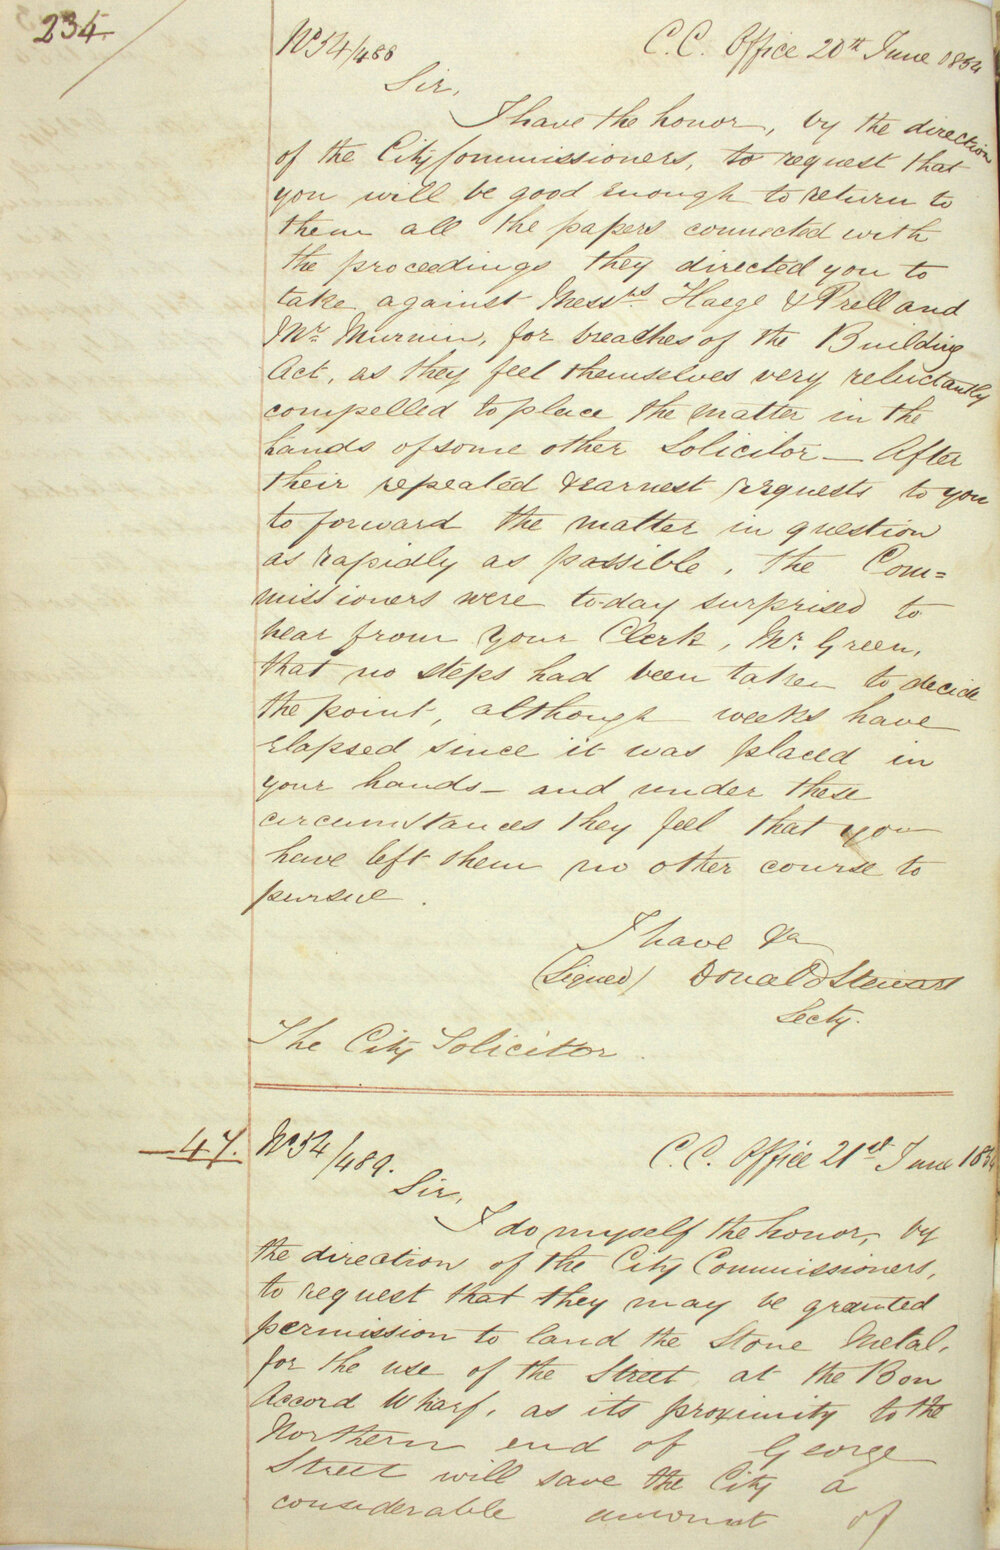 234
No 54/488 C. C. Office 20th June 1854
Sir,
I have the honor, by the direction
of the City Commissioners, to request that
you will be good enough to return to
them all the papers connected with
the proceedings they directed you to
take against Messrs Haege & Prell and
Mr Murnin, for breaches of the Building
Act, as they feel themselves very reluctantly
compelled to place the matter in the
hands of some other Solicitor — After
their repeated & earnest requests to you
to forward the matter in question
as rapidly as possible, the Com=
missioners were to-day surprised to
hear from your Clerk, Mr. Green,
that no steps had been taken to decide
the point, although weeks have
elapsed since it was placed in
your hands — and under these
circumstances they feel that you
have left them no other course to
pursue.
I have &a
(Signed) Donald Stewart
Secty.
The City Solicitor
47. No 54/489. C. C. Office 21st June 1854
Sir,
I do myself the honor, by
the direction of the City Commissioners,
to request that they may be granted
permission to land the Stone Metal,
for the use of the Street, at the Bon
Accord Wharf, as its proximity to the
Northern end of George
Street will save the City a
considerable amount of